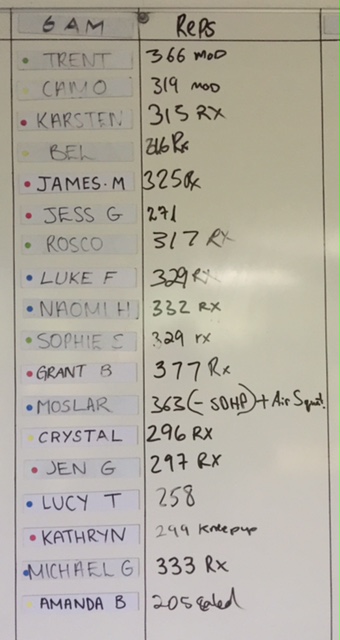 6 AM Reps
TRENT 366 MOD
CAMO 319 MOD
KARSTEN 315 RX
BEL 216 Rx
JAMES.M 325 Rx
JESS G 271
ROSCO 317 RX
LUKE F 329 RX
NAOMI H 332 RX
SOPHIE E 329 rx
GRANT B 377 Rx
MOSLAR 363 (- SDHP) + Air Squat.
CRYSTAL 296 RX
JEN G 297 RX
LUCY T 258
KATHRYN 299 Kneepup
MICHAEL G 333 Rx
AMANDA B 205